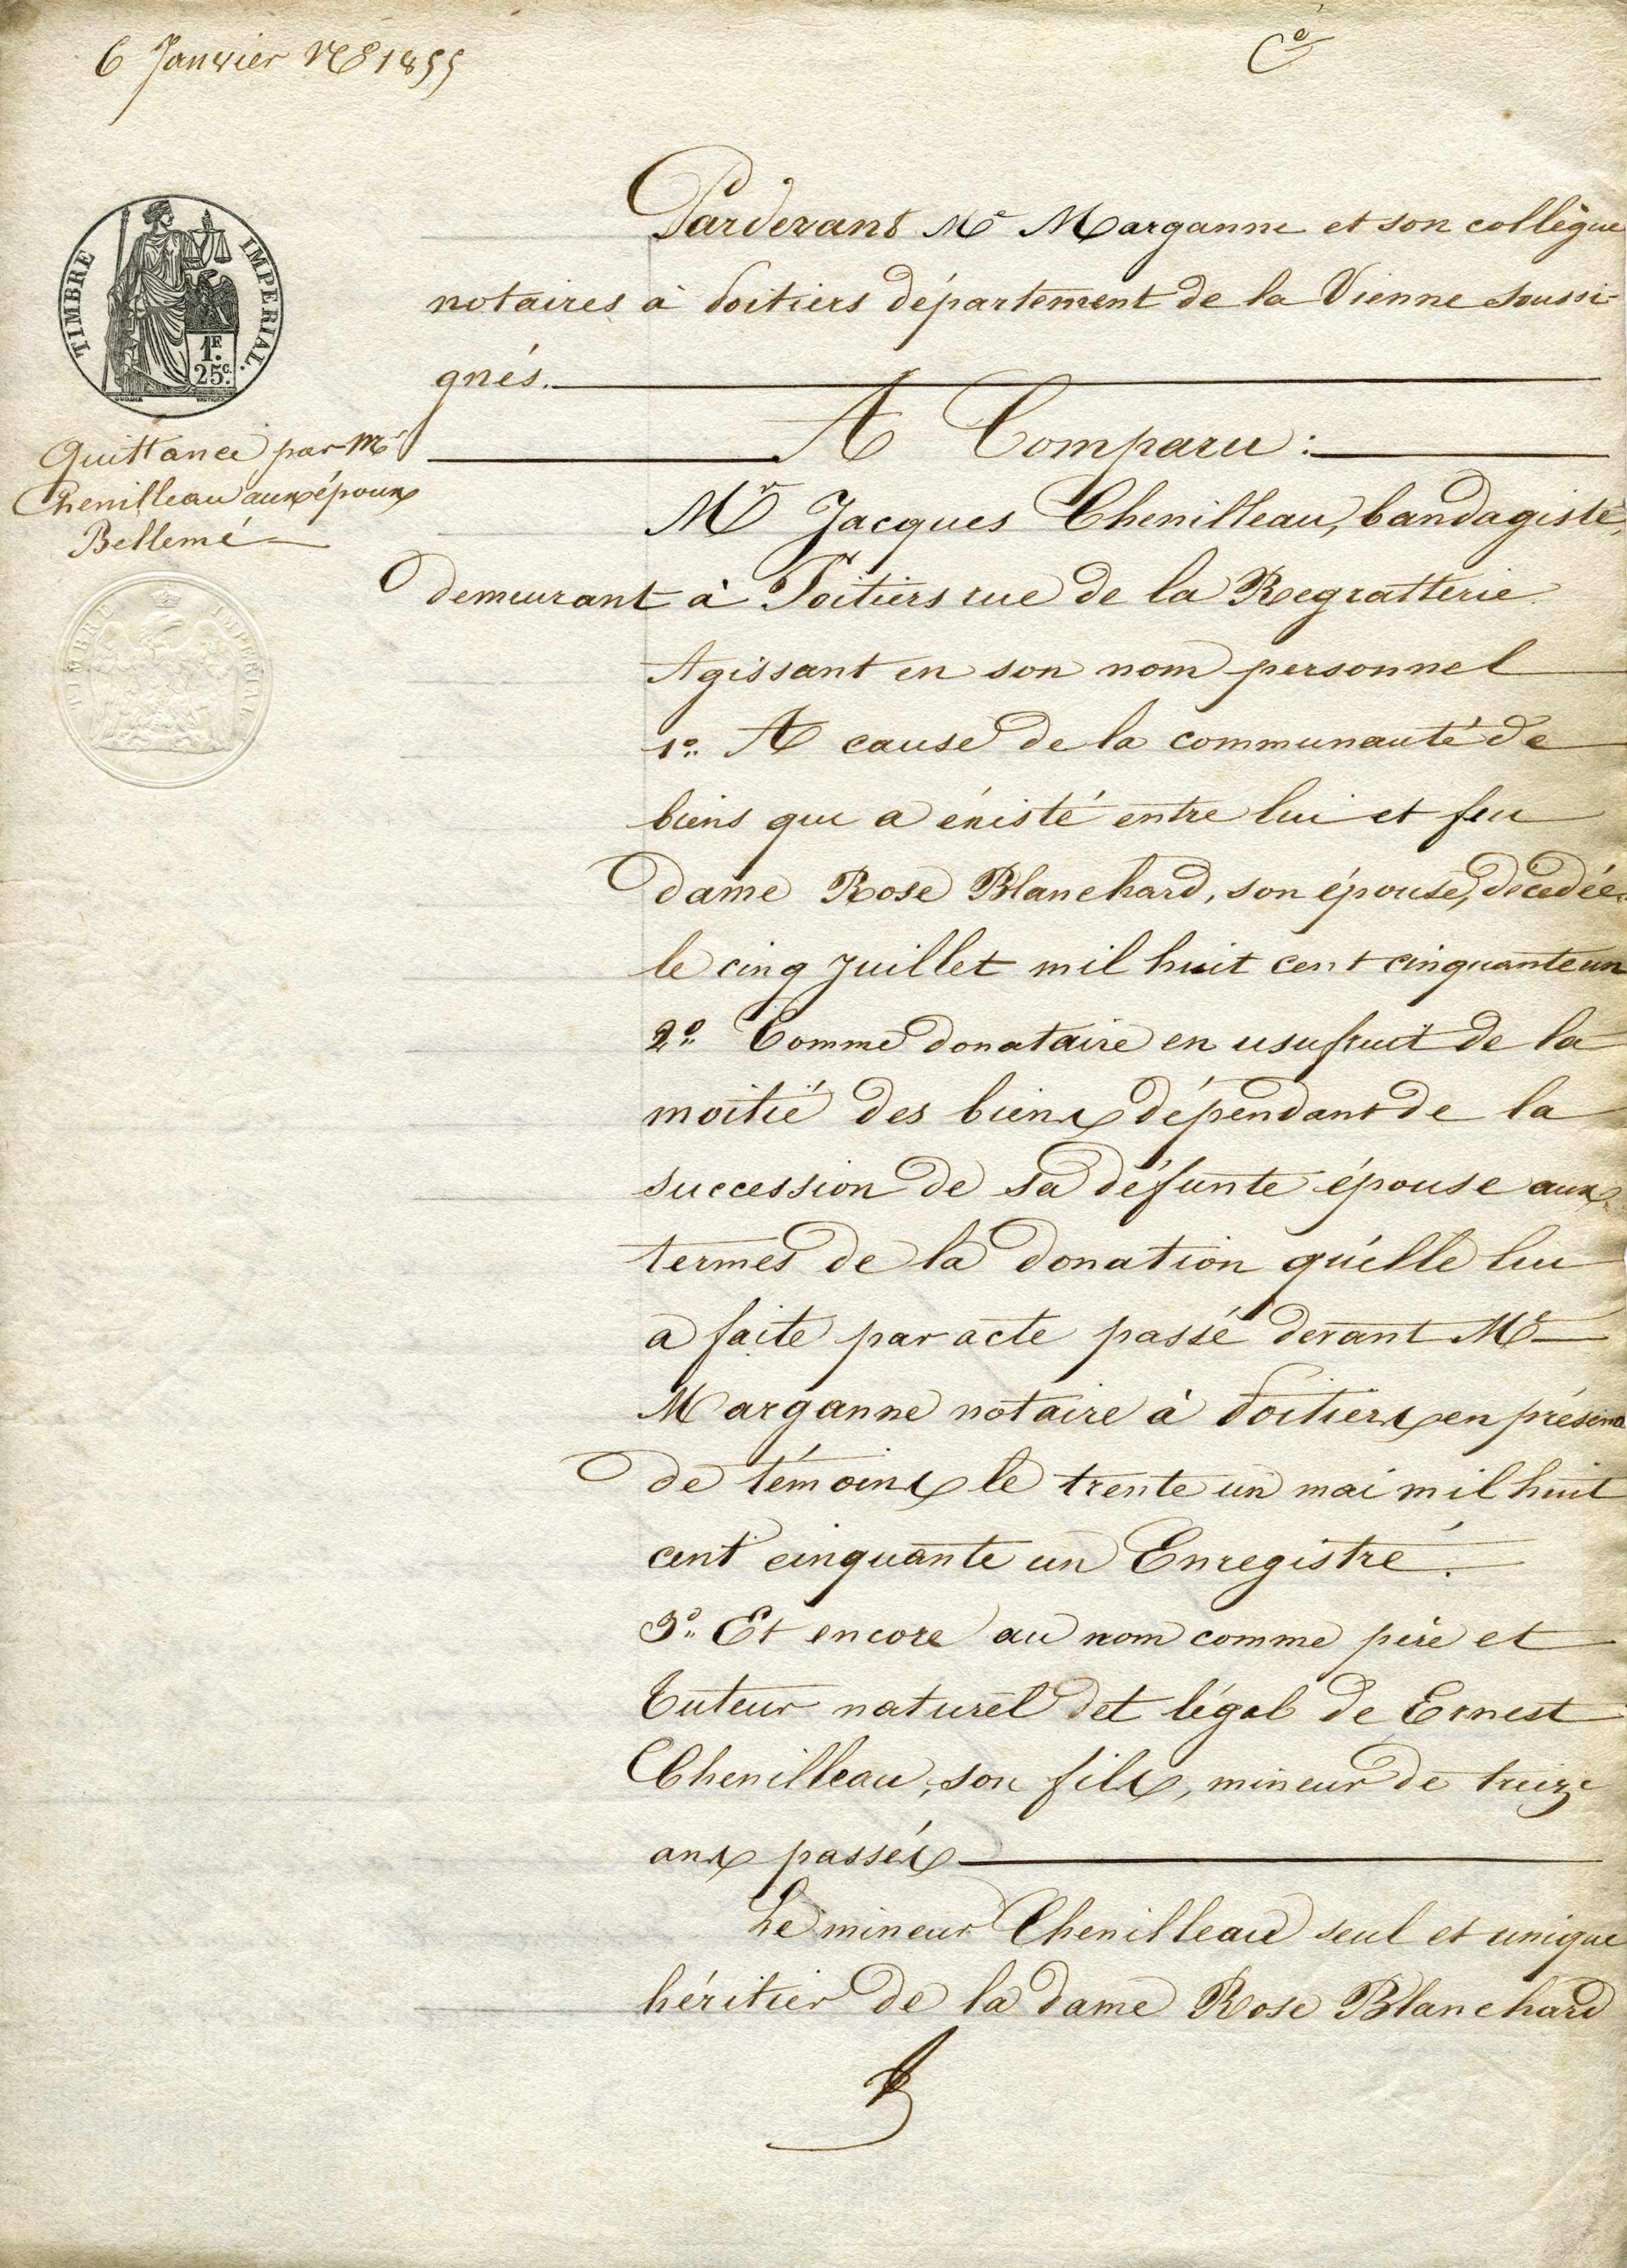 6 Janvier 1855
Cé
TIMBRE IMPERIAL.
1F.
25c.
Pardevant Me Marganne et son collègue
notaires à Poitiers département de la Vienne soussi-
gnés.
A Comparu :
Quittance par Mr
Chenilleau aux époux
Bellemé
TIMBRE IMPERIAL
Mr Jacques Chenilleau, bandagiste,
demeurant à Poitiers rue de la Regratterie.
Agissant en son nom personnel
1o. A cause de la communauté de
biens qui a éxisté entre lui et feu
dame Rose Blanchard, son épouse, décedée
le cinq Juillet mil huit cent cinquante un
2o. Comme donataire en usufruit de la
moitié des biens dépendant de la
succession de sa défunte épouse aux
termes de la donation qu'elle lui
a faite par acte passé devant Me
Marganne notaire à Poitiers en présence
de témoins le trente un mai mil huit
cent cinquante un Enregistré.
3o. Et encore au nom comme père et
tuteur naturel et légal de Ernest
Chenilleau, son fils, mineur de treize
ans passés
Le mineur Chenilleau seul et unique
héritier de la dame Rose Blanchard